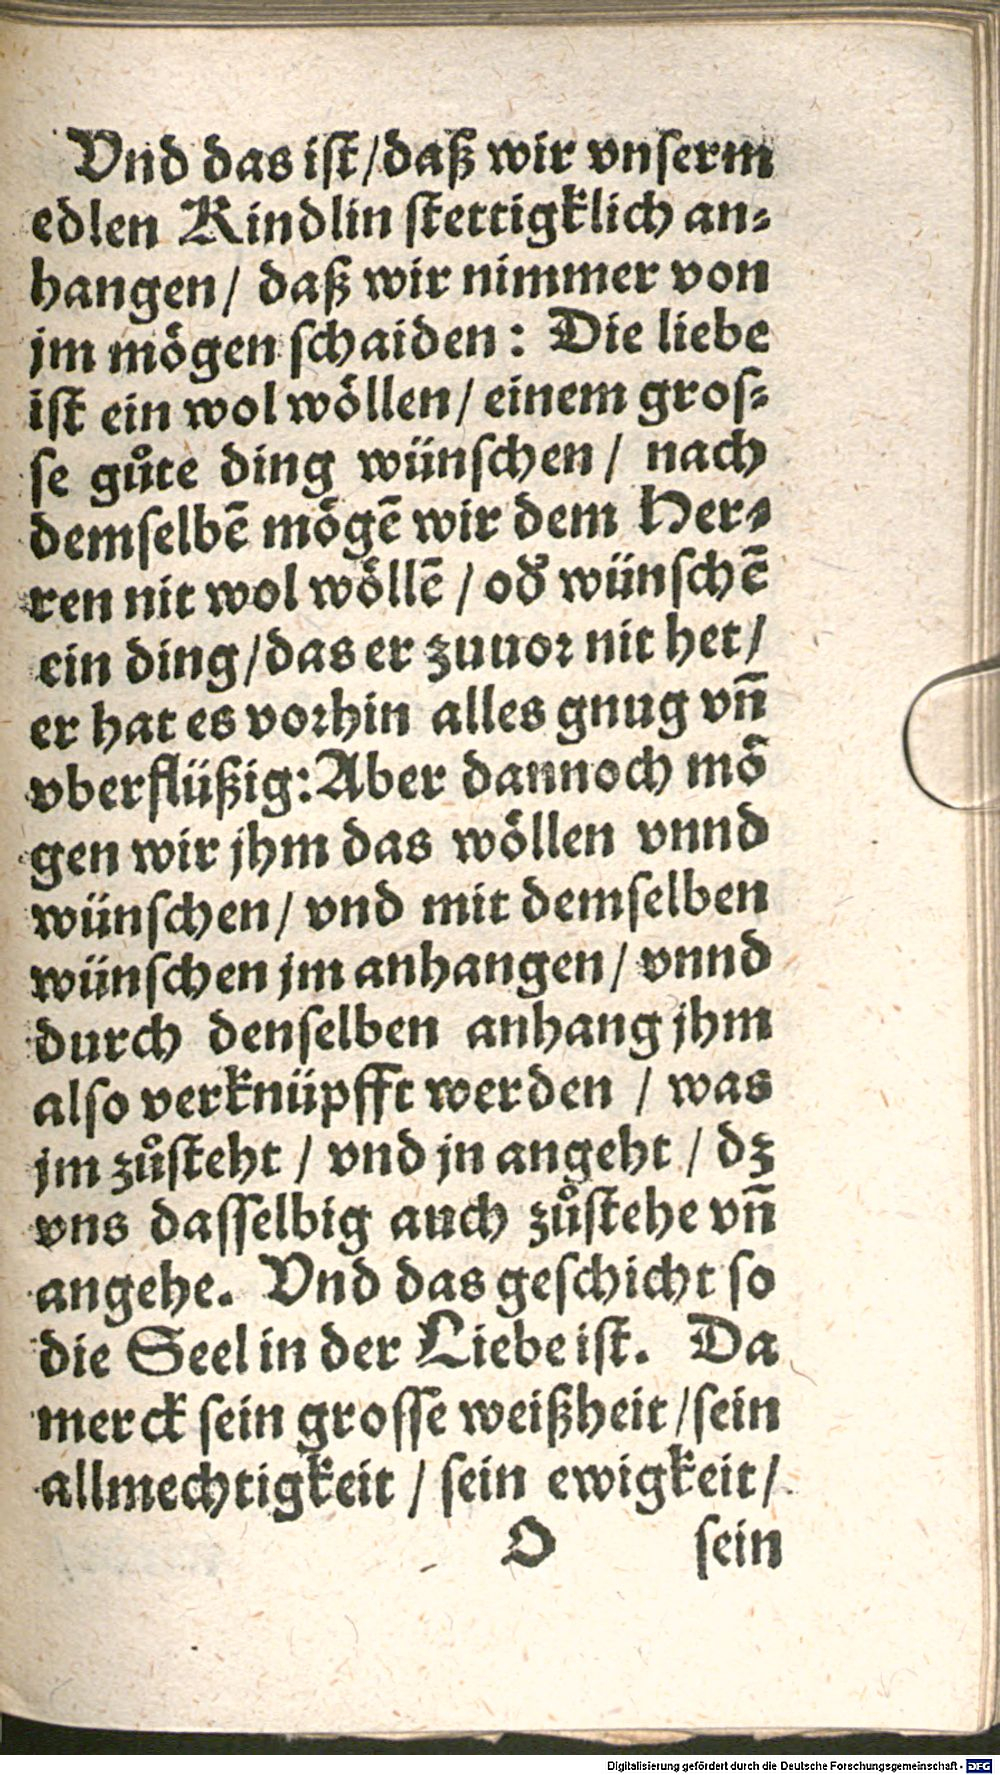 Vnd das ist/daß wir vnserm
edlen Kindlin stettigklich an⸗
hangen/ daß wir nimmer von
jm mögen schaiden: Die liebe
ist ein wol wöllen/ einem gros⸗
se gůte ding wünschen/ nach
demselbẽ mögẽ wir dem Her⸗
ren nit wol wöllẽ / od̕ wünschẽ
ein ding/das er zuuor nit het/
er hat es vorhin alles gnug vñ
vberflüßig: Aber dannoch mö
gen wir jhm das wöllen vnnd
wünschen/ vnd mit demselben
wünschen jm anhangen/ vnnd
durch denselben anhang jhm
also verknüpfft werden / was
jm zůsteht / vnd jn angeht / dz
vns dasselbig auch zůstehe vñ
angehe. Vnd das geschicht so
die Seel in der Liebe ist. Da
merck sein grosse weißheit /sein
allmechtigkeit / sein ewigkeit/
O sein
Digitalisierung gefördert durch die Deutsche Forschungsgemeinschaft - DFG